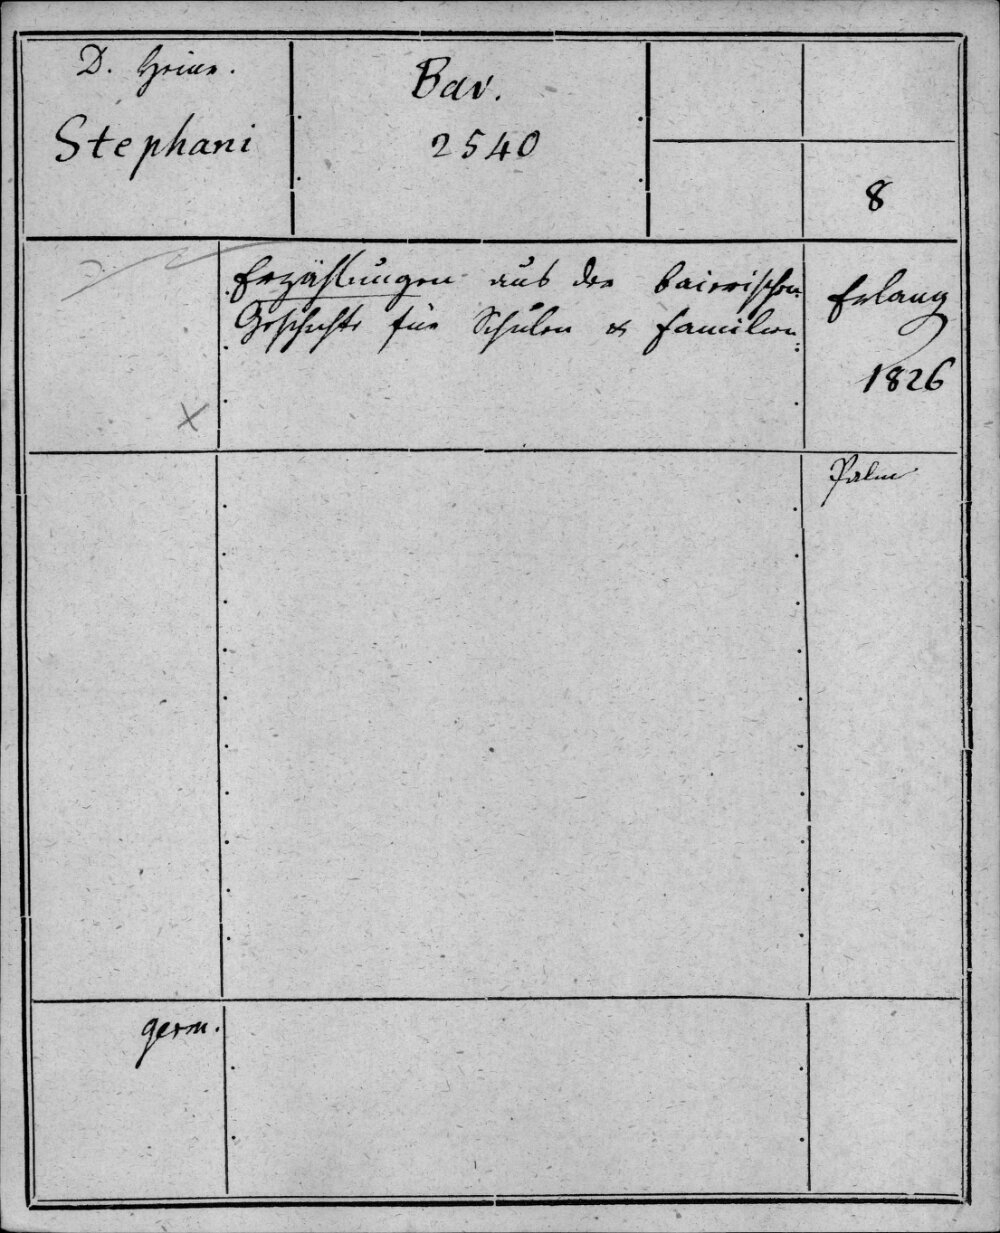 D. Heinr.
Stephani
Bav.
2540
8
Erzählungen aus der baierischen
Geschichte für Schulen & Familien
Erlang
1826
Palm
germ.